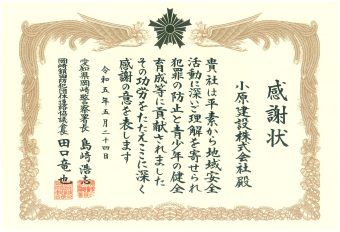 感謝状
小原建設株式会社殿
貴社は平素から地域安全
活動に深いご理解を寄せられ
犯罪の防止と青少年の健全
育成等に貢献されました
その功労をたたえここに深く
感謝の意を表します
令和五年五月二十四日
愛知県岡崎警察署長 島崎浩志
岡崎額田防犯団体連絡協議会長 田口竜也